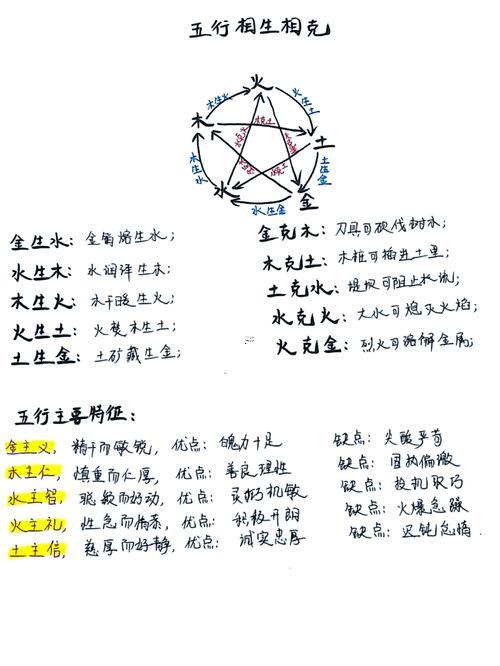 五行相生相克
火
木生火
火生土
木
土
水
金
土生金
水生金
金生水：金销熔生水；
水生木：水润泽生木；
木生火：木干暖生火；
火生土：火焚木生土；
土生金：土矿藏生金；
金克木：刀具可砍伐树木；
木克土：木桩可插进土里；
土克水：堤坝可阻止水流；
水克火：大水可熄灭火焰；
火克金：烈火可溶解金属；
五行主要特征：
金主义，精干而敏锐，优点：魄力十足 缺点：尖酸严苛
木主仁，慎重而仁厚，优点：善良理性 缺点：固执偏激
水主智，聪敏而好动，优点：灵巧机敏 缺点：投机取巧
火主礼，性急而情柔，优点：积极开朗 缺点：火爆急躁
土主信，慈厚而好静，优点：诚实忠厚 缺点：迟钝怠惰